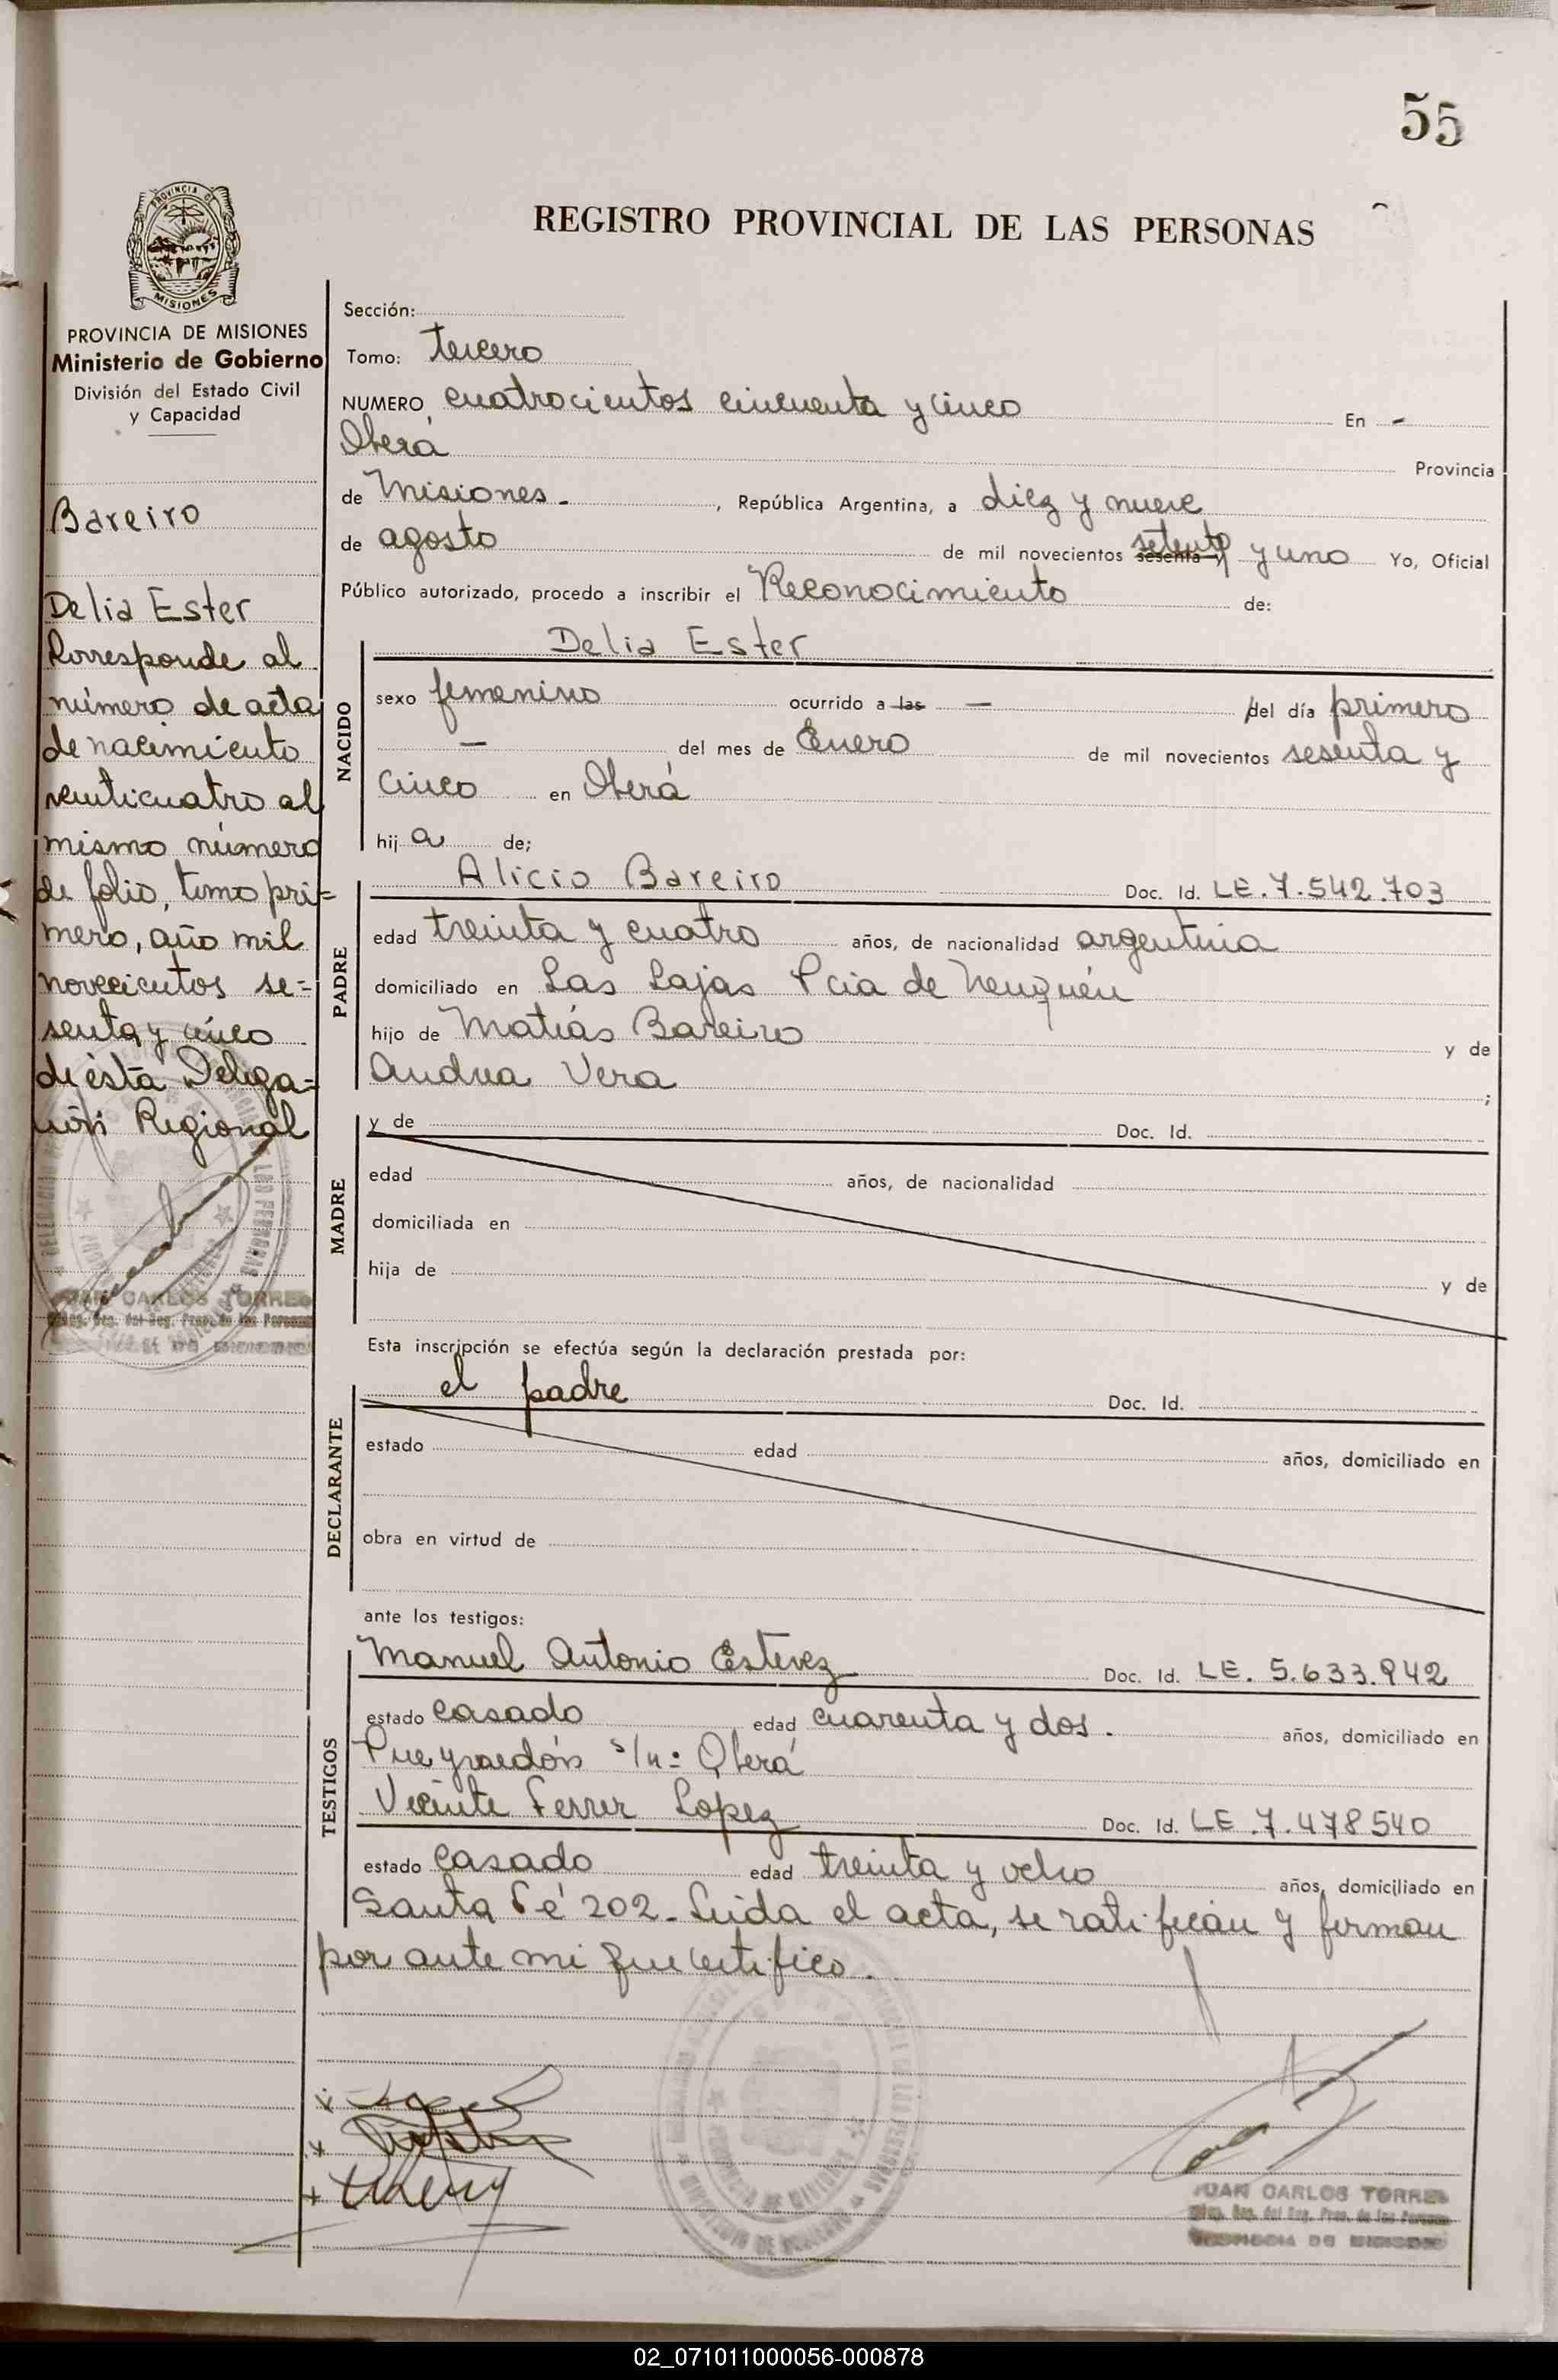 55
REGISTRO PROVINCIAL DE LAS PERSONAS
PROVINCIA DE MISIONES
PROVINCIA DE MISIONES
Ministerio de Gobierno
División del Estado Civil
y Capacidad
Bareiro
Delia Ester
Corresponde al
número de acta
de nacimiento
veinticuatro al
mismo número
de folio, tomo pri=
mero, año mil
novecientos se=
senta y cinco
de ésta Delega=
ción Regional
JUAN CARLOS TORRES
Sección:
Tomo: tercero
NUMERO cuatrocientos cincuenta y cinco En -
Oberá Provincia
de Misiones- , República Argentina, a diez y nueve
de agosto de mil novecientos sesenta y setenta y uno Yo, Oficial
Público autorizado, procedo a inscribir el Reconocimiento de:
NACIDO
Delia Ester
sexo femenino ocurrido a las — del día primero
— del mes de Enero de mil novecientos sesenta y
cinco en Oberá
hij a de;
PADRE
Alicio Bareiro Doc. Id. LE.7.542.703
edad treinta y cuatro años, de nacionalidad argentina
domiciliado en Las Lajas Pcia de Neuquén
hijo de Matías Bareiro y de
Andrea Vera ;
MADRE
y de Doc. Id.
edad años, de nacionalidad
domiciliada en
hija de y de
Esta inscripción se efectúa según la declaración prestada por:
DECLARANTE
el padre Doc. Id.
estado edad años, domiciliado en
obra en virtud de
ante los testigos:
TESTIGOS
Manuel Antonio Estevez Doc. Id. LE. 5.633.942
estado casado edad cuarenta y dos. años, domiciliado en
Pueyrredón s/n: Oberá
Vicente Ferrer Lopez Doc. Id. LE.7.478540
estado casado edad treinta y ocho años, domiciliado en
Santa Fé 202- Leida el acta, se ratifican y firman
por ante mi que certifico.
JUAN CARLOS TORRES
02_071011000056-000878